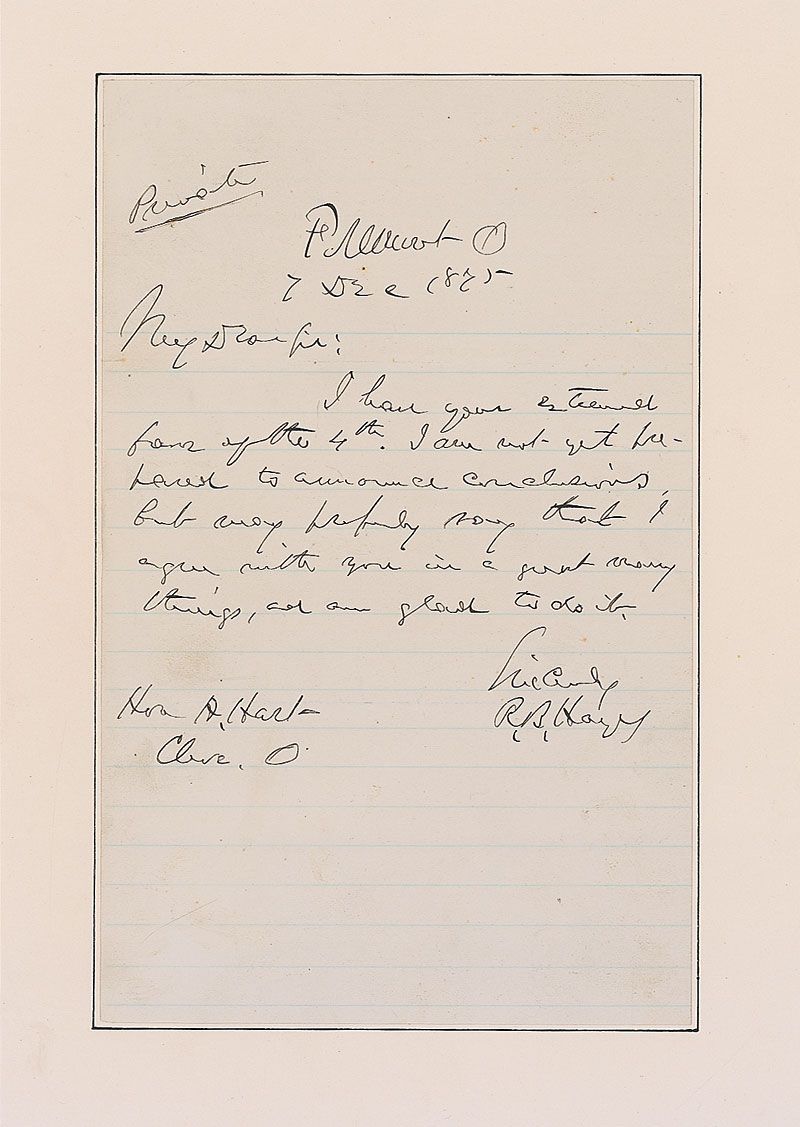 Private
Fremont O
7 Dec 1875
My Dear Sir:
I have your esteemed
favor of the 4th. I am not yet pre-
pared to announce conclusions,
but may properly say that I
agree with you in a great many
things, and am glad to do it.
Sincerely
R. B. Hayes
Hon A. Hart
Cleve. O